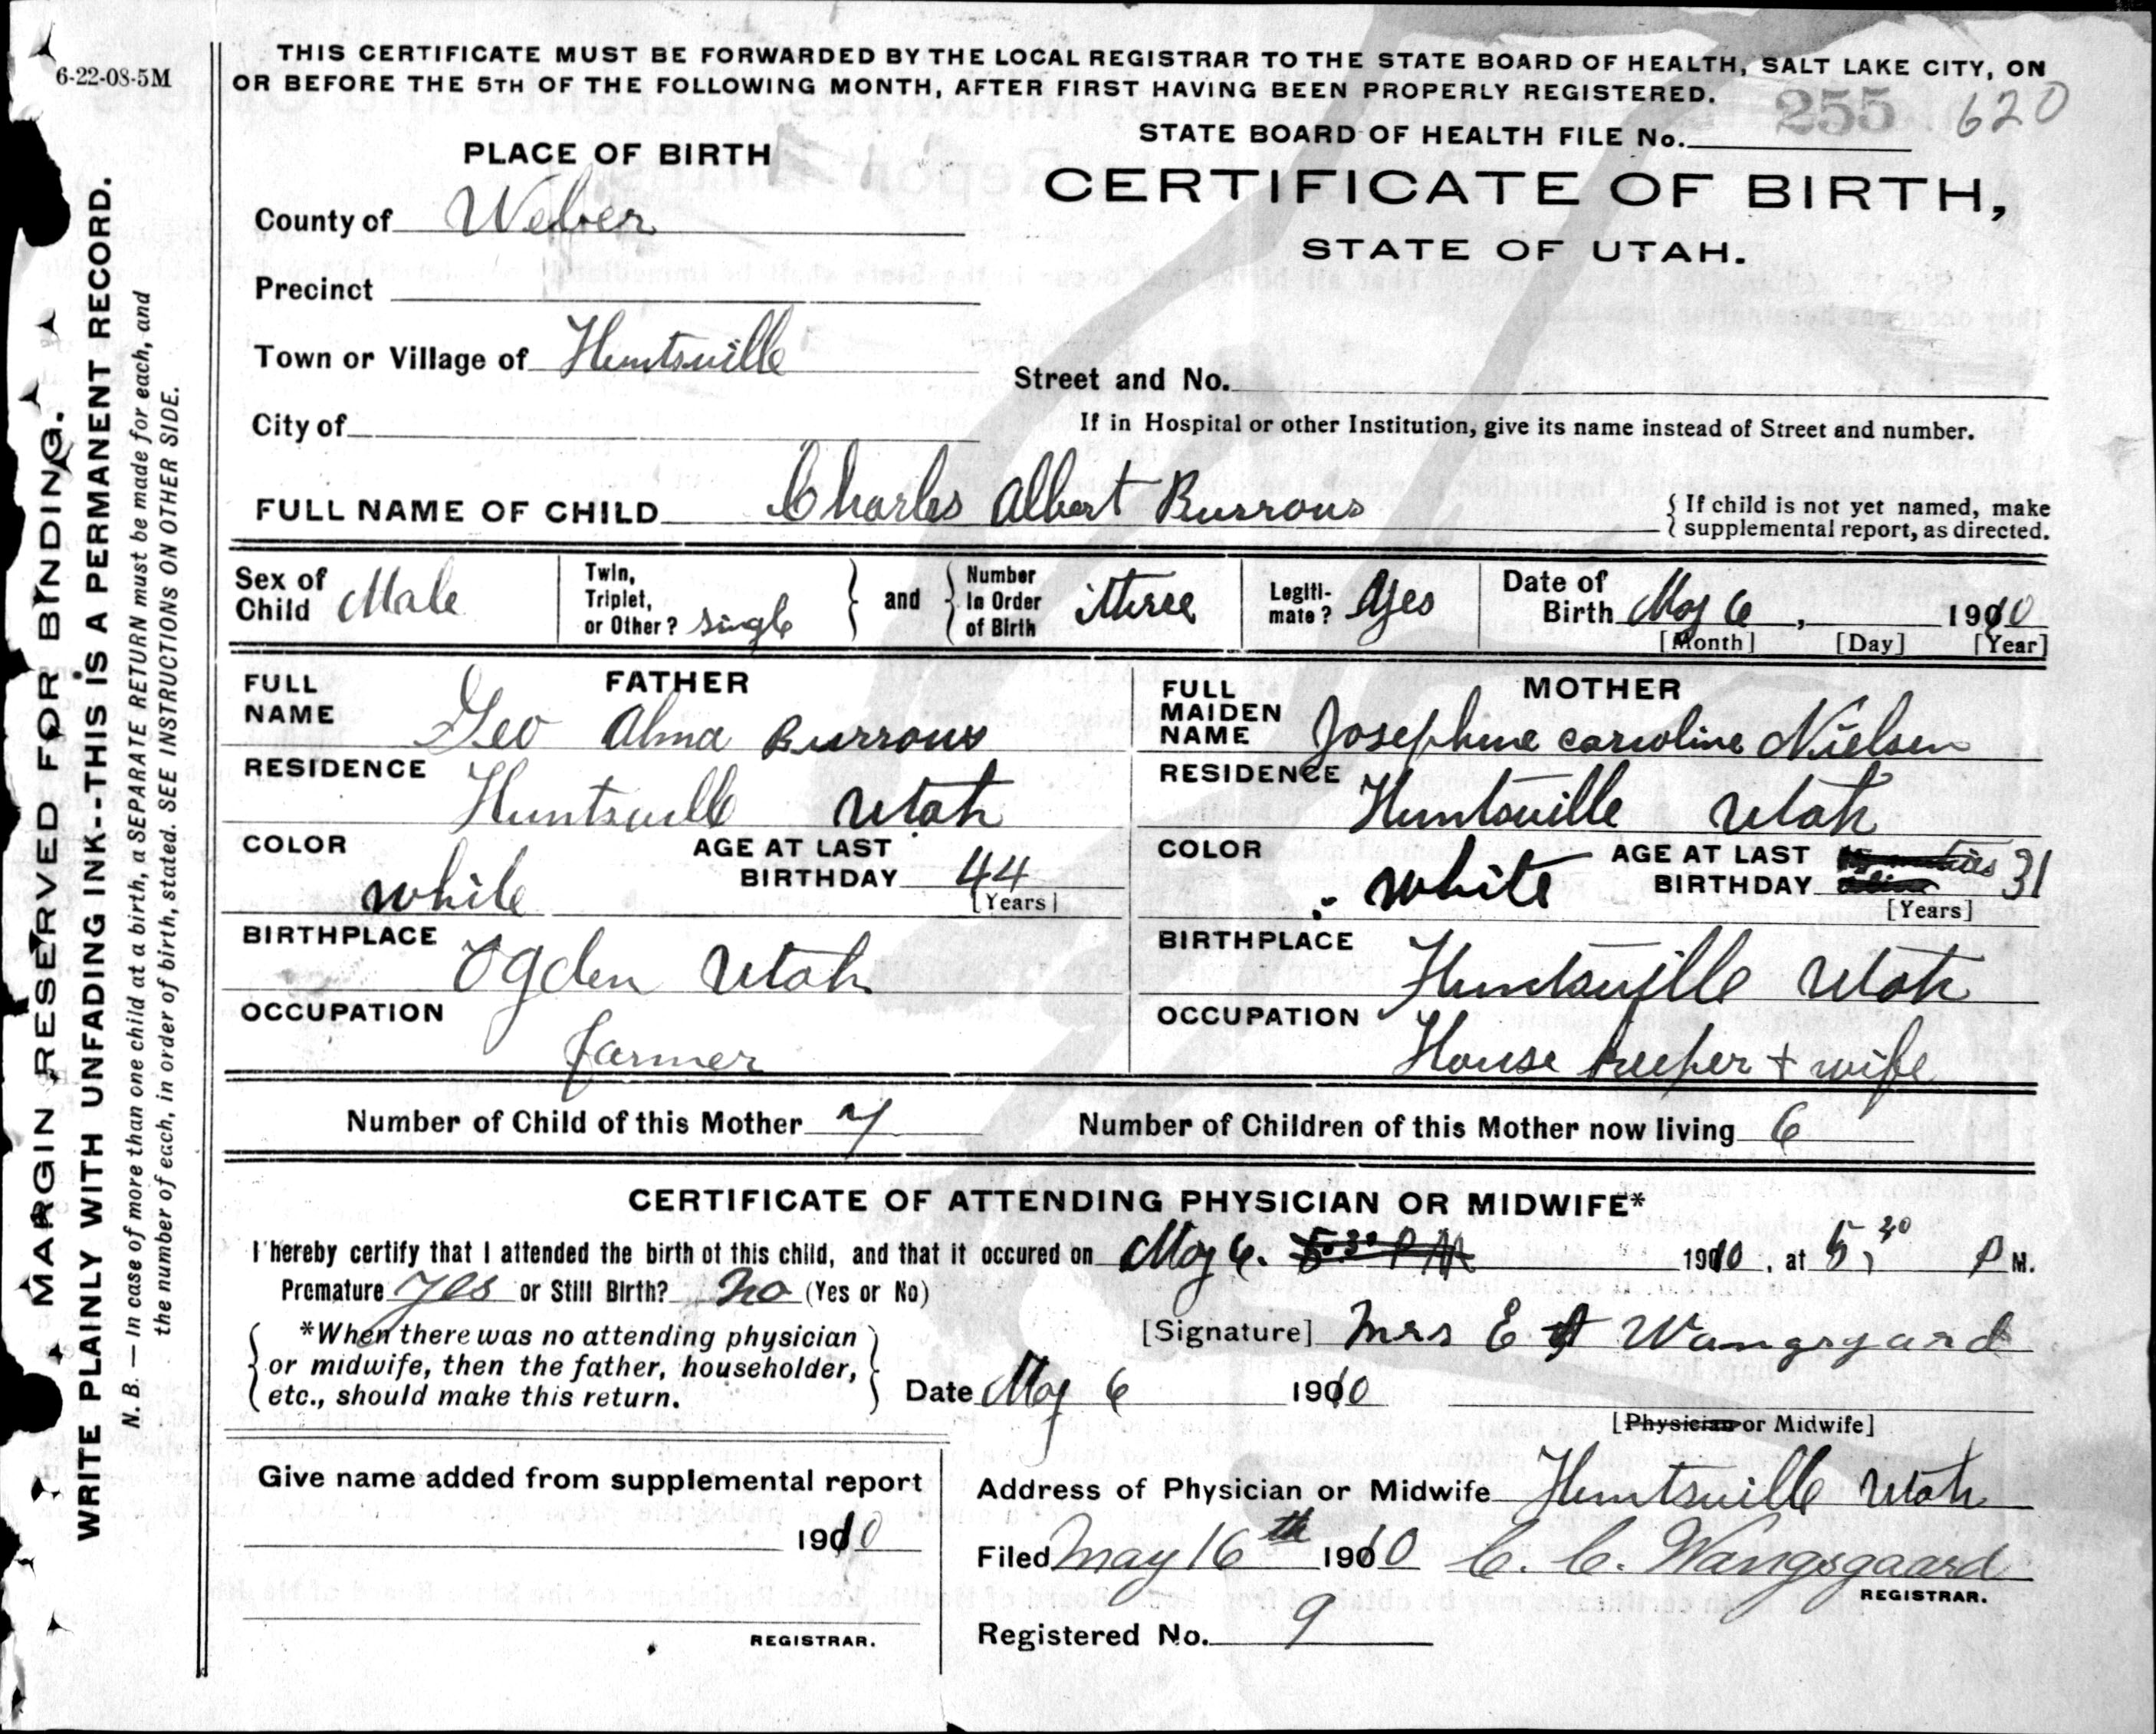 6-22-08-5M
THIS CERTIFICATE MUST BE FORWARDED BY THE LOCAL REGISTRAR TO THE STATE BOARD OF HEALTH, SALT LAKE CITY, ON
OR BEFORE THE 5TH OF THE FOLLOWING MONTH, AFTER FIRST HAVING BEEN PROPERLY REGISTERED.
255 620
STATE BOARD OF HEALTH FILE No.
PLACE OF BIRTH
CERTIFICATE OF BIRTH,
STATE OF UTAH.
County of Weber
Precinct
Town or Village of Huntsville
Street and No.
City of
If in Hospital or other Institution, give its name instead of Street and number.
FULL NAME OF CHILD Charles Albert Burrows
{ If child is not yet named, make
supplemental report, as directed.
Sex of Child Male
Twin, Triplet, or Other? single
and
Number In Order of Birth three
Legiti-mate? Yes
Date of Birth May 6, 1910
[Month] [Day] [Year]
FATHER
FULL NAME Geo Alma Burrows
RESIDENCE Huntsville Utah
COLOR white
AGE AT LAST BIRTHDAY 44
[Years]
BIRTHPLACE Ogden Utah
OCCUPATION farmer
MOTHER
FULL MAIDEN NAME Josephine Caroline Nielsen
RESIDENCE Huntsville Utah
COLOR white
AGE AT LAST BIRTHDAY 31
[Years]
BIRTHPLACE Huntsville Utah
OCCUPATION House keeper + wife
Number of Child of this Mother 7
Number of Children of this Mother now living 6
CERTIFICATE OF ATTENDING PHYSICIAN OR MIDWIFE*
I hereby certify that I attended the birth of this child, and that it occured on May 6. 5 30 PM 1910, at 5,30 P M.
Premature yes or Still Birth? no (Yes or No)
*When there was no attending physician
or midwife, then the father, householder,
etc., should make this return.
[Signature] Mrs E Wangsgard
Date May 6 1910
[Physician or Midwife]
Give name added from supplemental report
1910
REGISTRAR.
Address of Physician or Midwife Huntsville Utah
Filed May 16th 1910 C. C. Wangsgaard
REGISTRAR.
Registered No. 9
MARGIN RESERVED FOR BINDING.
WRITE PLAINLY WITH UNFADING INK--THIS IS A PERMANENT RECORD.
N. B. — In case of more than one child at a birth, a SEPARATE RETURN must be made for each, and
the number of each, in order of birth, stated. SEE INSTRUCTIONS ON OTHER SIDE.